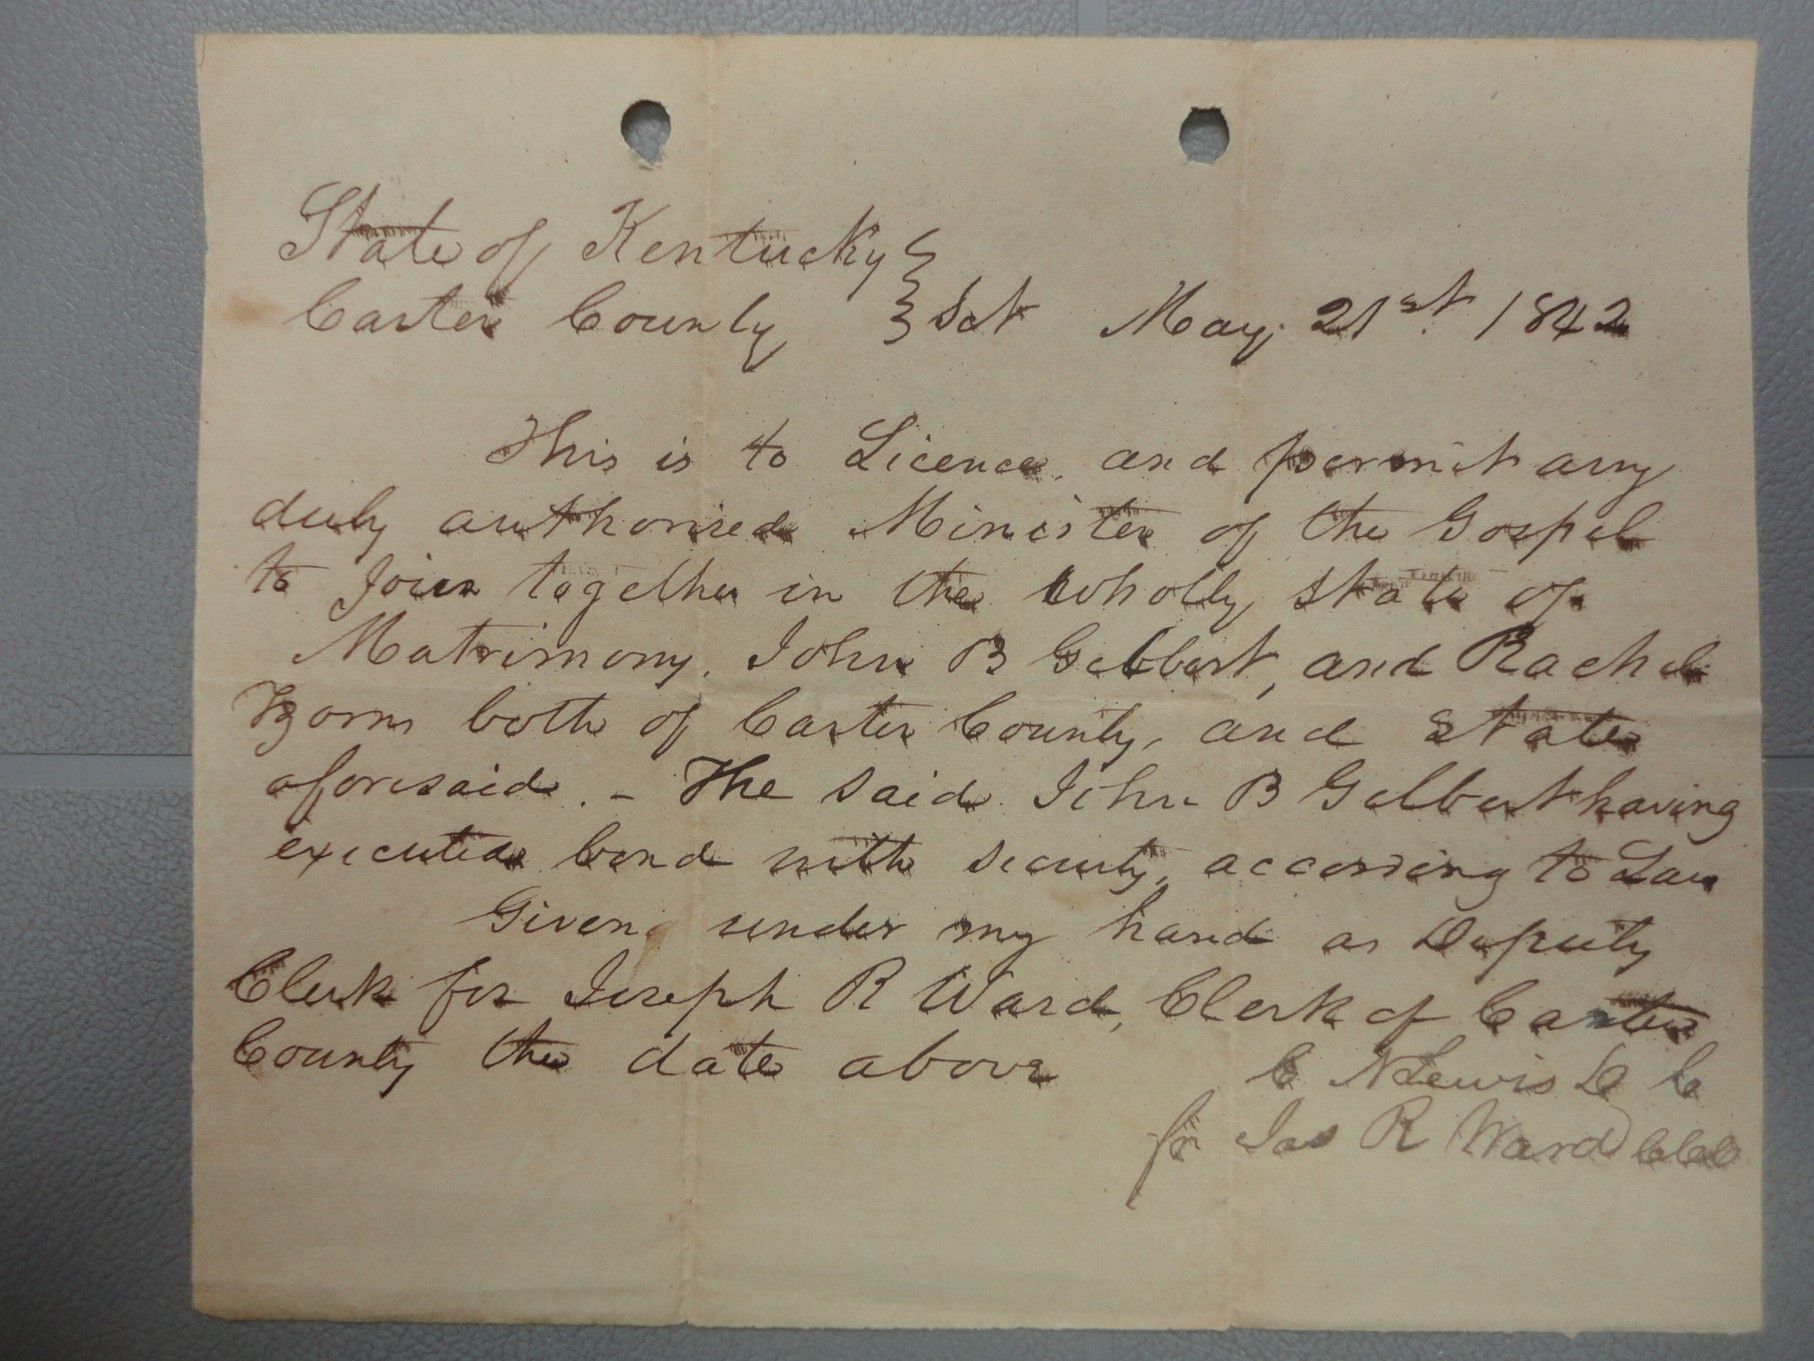 State of Kentucky }
Carter County } Sct May 21st 1842
This is to Licence and permit any
duly authorised Minister of the Gospel
to Join together in the wholly state of
Matrimony, John B Gilbert, and Rachel
both of Carter County, and State
aforesaid. - The said John B Gilbert having
executed bond with security, according to Law
Given under my hand as Deputy
Clerk for Joseph R Ward, Clerk of Carter
County the date above
C N Lewis D C
for Jos R Ward